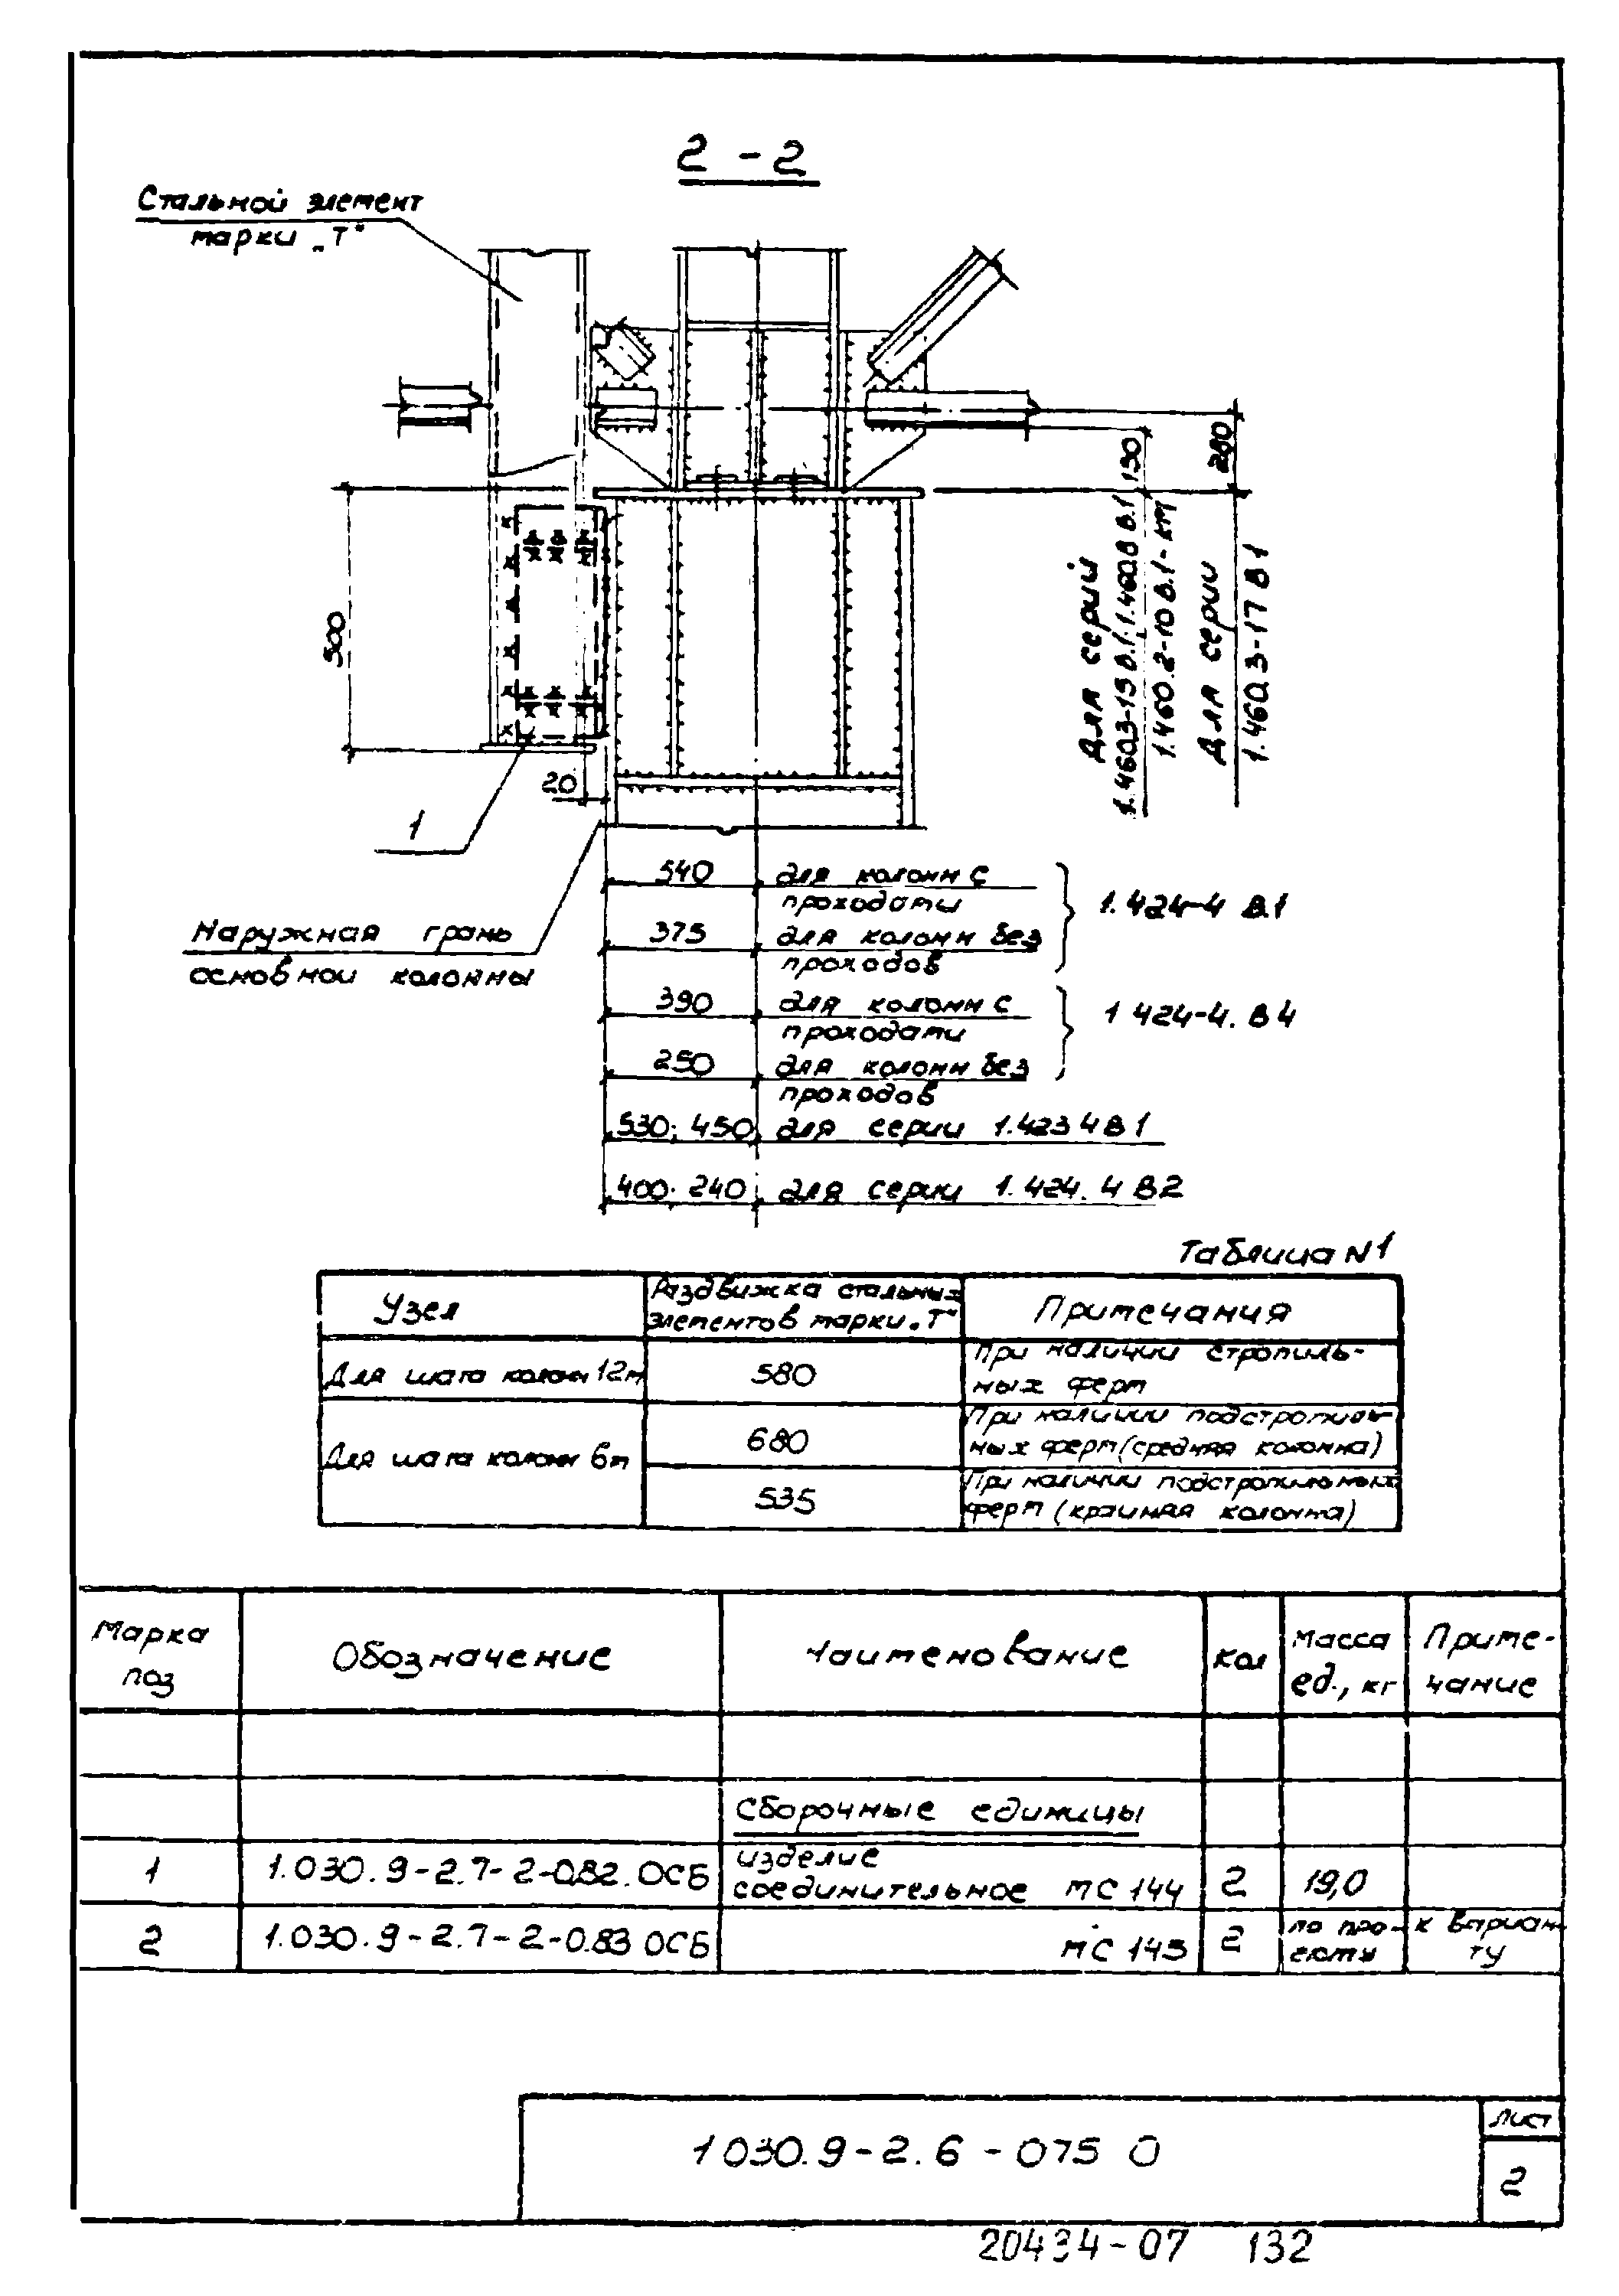 2-2
Стальной элемент
марки „Т"
500
20
1
Наружная грань
основной колонны
130
280
Для серий
1.460.2-10 В.1-КМ
Для серии
1.460.3-17 В1
540 для колонн с
проходами
375 для колонн без
проходов
1.424-4 В.1
390 для колонн с
проходами
250 для колонн без
проходов
1 424-4. В4
530; 450 для серии 1.423 4 В 1
400. 240 для серии 1.424. 4 В2
Таблица N1
Узел
Раздвижка стальных
элементов марки „Т"
Примечания
Для шага колонн 12м
580
При наличии стропиль-
ных ферм
Для шага колонн 6м
680
При наличии подстропиль-
ных ферм (средняя колонна)
535
При наличии подстропильных
ферм (крайняя колонна)
Марка
поз
Обозначение
Наименование
Кол
Масса
ед., кг
Приме-
чание
Сборочные единицы
1
1.030.9-2.7-2-082.0СБ
изделие
соединительное МС 144
2
19,0
2
1.030.9-2.7-2-0.83 0СБ
МС 145
2
по про-
екту
к вариан-
ту
1 030.9-2.6-075 0
Лист
2
20434-07 132